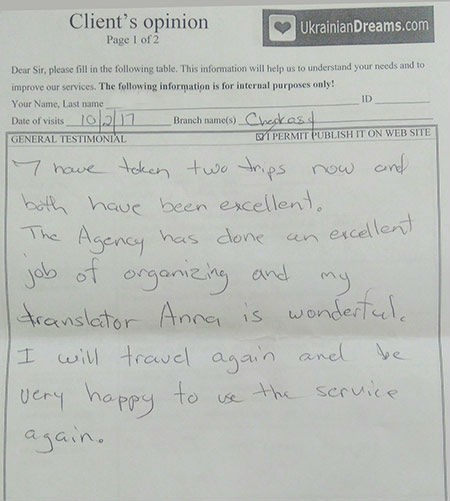 Client's opinion
Page 1 of 2
UkrainianDreams.com
Dear Sir, please fill in the following table. This information will help us to understand your needs and to
improve our services. The following information is for internal purposes only!
Your Name, Last name ID
Date of visits 10/2/17 Branch name(s) Cherkassy
GENERAL TESTIMONIAL ☑I PERMIT PUBLISH IT ON WEB SITE
I have taken two trips now and
both have been excellent.
The Agency has done an excellent
job of organizing and my
translator Anna is wonderful.
I will travel again and be
very happy to use the service
again.